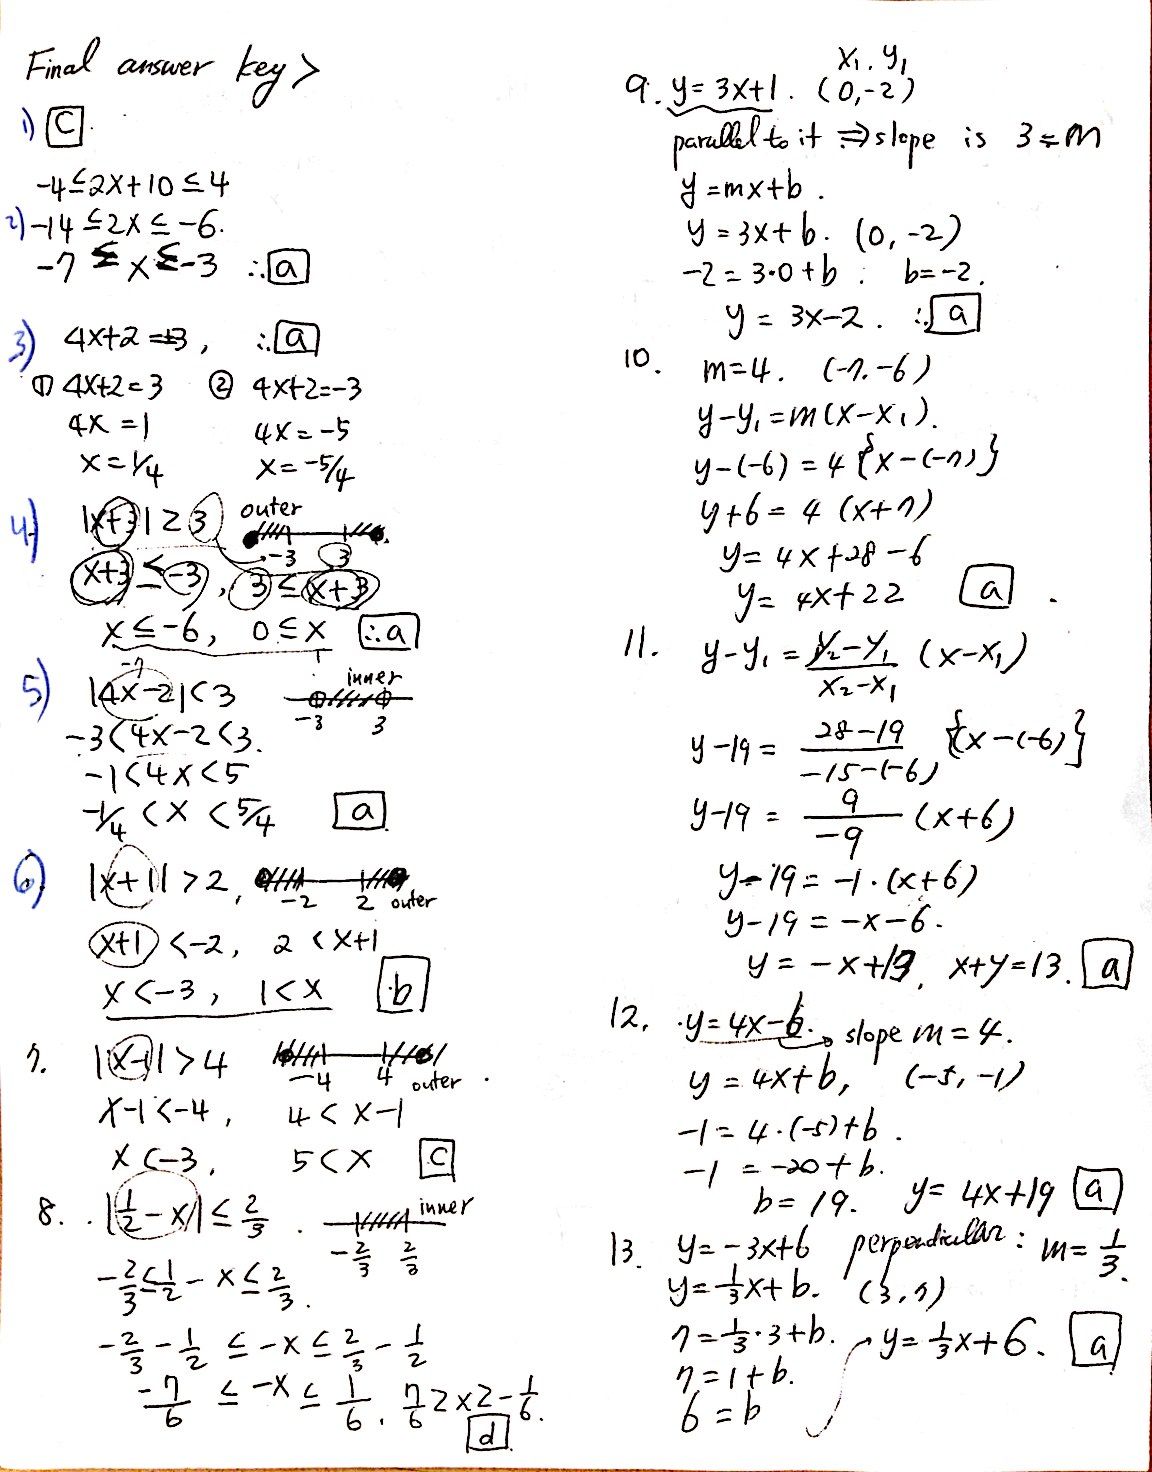 Final answer key >
1) C.
-4≤2x+10≤4
2) -14≤2x≤-6.
-7≤x≤-3 ∴a
3) 4x+2=±3, ∴a
① 4x+2=3 ② 4x+2=-3
4x=1 4x=-5
x=1/4 x=-5/4
4) |x+3|≥3 outer
-3 3
x+3≤-3, 3≤x+3
x≤-6, 0≤x ∴a
5) |4x-2|<3 inner
-3 3
-3<4x-2<3.
-1<4x<5
-1/4<x<5/4 a
6) |x+1|>2, -2 2 outer
x+1<-2, 2<x+1
x<-3, 1<x b
7. |x-1|>4 -4 4 outer
x-1<-4, 4<x-1
x<-3, 5<x c
8. |1/2-x|≤2/3. inner
-2/3 2/3
-2/3≤1/2-x≤2/3.
-2/3-1/2≤-x≤2/3-1/2
-7/6≤-x≤1/6. 7/6≥x≥-1/6.
d
x1. y1
9. y=3x+1. (0,-2)
parallel to it ⇒ slope is 3=m
y=mx+b.
y=3x+b. (0,-2)
-2=3·0+b. b=-2.
y=3x-2. ∴a
10. m=4. (-7.-6)
y-y1=m(x-x1).
y-(-6)=4{x-(-7)}
y+6=4(x+7)
y=4x+28-6
y=4x+22 a.
11. y-y1=y2-y1/x2-x1 (x-x1)
y-19=28-19/-15-(-6) {x-(-6)}
y-19=9/-9 (x+6)
y-19=-1·(x+6)
y-19=-x-6.
y=-x+13, x+y=13. a
12. y=4x-6. slope m=4.
y=4x+b, (-5,-1)
-1=4·(-5)+b.
-1=-20+b.
b=19. y=4x+19 a
13. y=-3x+6 perpendicular: m=1/3.
y=1/3x+b. (3,7)
7=1/3·3+b. y=1/3x+6. a
7=1+b.
6=b